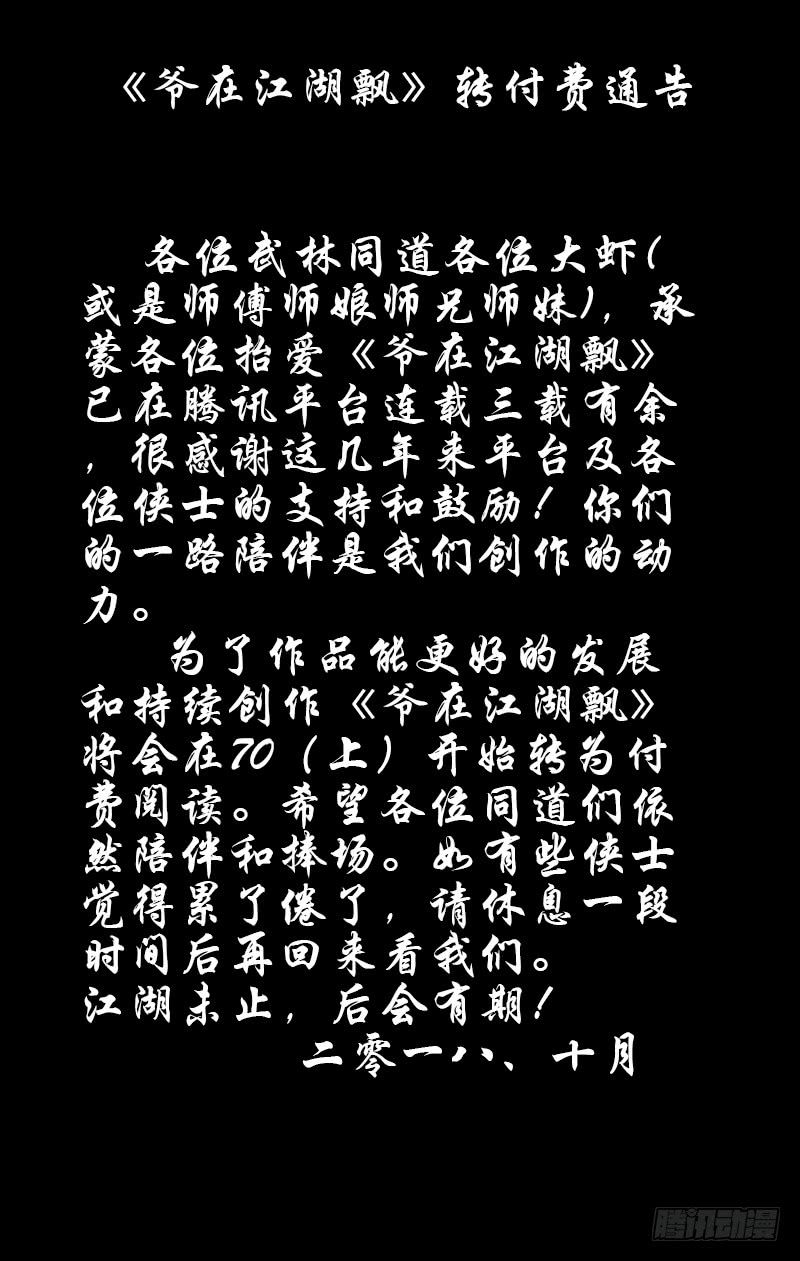 《爷在江湖飘》转付费通告
各位武林同道各位大虾(
或是师傅师娘师兄师妹)，承
蒙各位抬爱《爷在江湖飘》
已在腾讯平台连载三载有余
，很感谢这几年来平台及各
位侠士的支持和鼓励！你们
的一路陪伴是我们创作的动
力。
为了作品能更好的发展
和持续创作《爷在江湖飘》
将会在70（上）开始转为付
费阅读。希望各位同道们依
然陪伴和捧场。如有些侠士
觉得累了倦了，请休息一段
时间后再回来看我们。
江湖未止，后会有期！
二零一八、十月
腾讯动漫